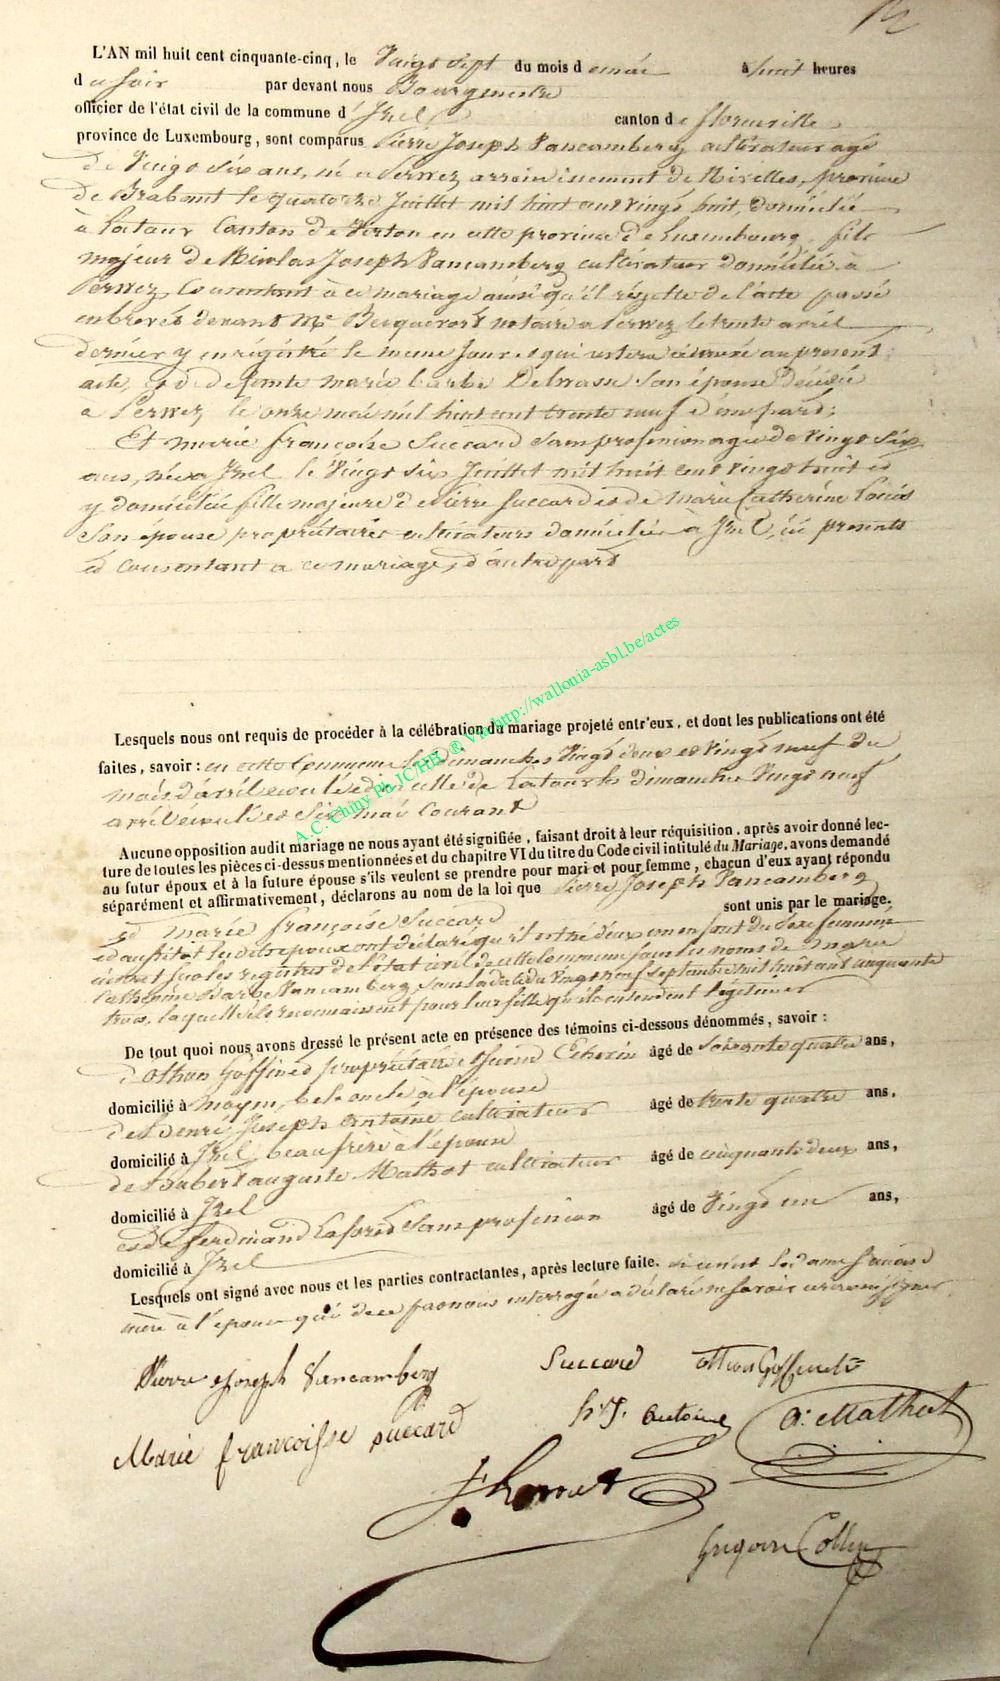 12
L'AN mil huit cent cinquante-cinq, le Vingt sept du mois d e mai à huit heures
d u soir par devant nous Bourgmestre
officier de l'état civil de la commune d' Izel canton d e florenville
province de Luxembourg, sont comparus Pierre Joseph Vancamberg cultivateur agé
de Vingt six ans, né a Perwez arrondissement de Nivelles, province
de Brabant le quatorze Juillet mil huit cent vingt huit, domicilié
à Latour Canton de Virton en cette province de Luxembourg, fils
majeur de Nicolas Joseph Vancamberg cultivateur domicilié à
Perwez, Consentant à ce mariage ainsi qu'il résulte de l'acte passé
en brevet devant Me notaire a Perwez le trente avril
dernier y enrégistré le meme jour et qui restera annexé au présent
acte, et de defunte marie barbe Delwasse son épouse décédée
à Perwez le onze mai mil huit cent trente neuf d'une part;
Et marie françoise Succard sans profession agée de vingt six
ans, née a Izel le Vingt six Juillet mil huit cent vingt huit et
y domiciliée fille majeure de Pierre Succard et de marie Catherine Louis
son épouse propriétaires cultivateurs domiciliés à Izel, ici présents
et consentant a ce mariage, d'autre part
A.C. Chiny Ph JC/HH ® Via http://wallonia-asbl.be/actes
Lesquels nous ont requis de procéder à la célébration du mariage projeté entr'eux, et dont les publications ont été
faites, savoir : en cette Commune les dimanches Vingt deux et vingt neuf du
mois d'avril écoulé et à celle de Latour les dimanches Vingt neuf
avril écoulé et Six mai Courant
Aucune opposition audit mariage ne nous ayant été signifiée, faisant droit à leur réquisition, après avoir donné lec-
ture de toutes les pièces ci-dessus mentionnées et du chapitre VI du titre du Code civil intitulé du Mariage, avons demandé
au futur époux et à la future épouse s'ils veulent se prendre pour mari et pour femme, chacun d'eux ayant répondu
séparément et affirmativement, déclarons au nom de la loi que Pierre Joseph Vancamberg
et marie françoise Succard sont unis par le mariage.
et aussitot les dits époux ont déclaré qu'il est né d'eux un enfant du sexe feminin
inscrit sur les registres de l'état civil de cette Commune sous les noms de marie
Catherine Barbe Vancamberg sous la date du vingt neuf septembre mil huit cent cinquante
trois, laquelle ils reconnaissent pour leur fille qu'ils entendent légitimer
De tout quoi nous avons dressé le présent acte en présence des témoins ci-dessous dénommés, savoir :
d'othon Goffinet propriétaire ancien Echevin âgé de soixante quatre ans,
domicilié à moyen, bel oncle à l'épouse
de henri Joseph Antoine cultivateur âgé de trente quatre ans,
domicilié à Izel, beau frère à l'épouse
de hubert auguste Mathot cultivateur âgé de cinquante deux ans,
domicilié à Izel
et de ferdinand Laforet Sans profession âgé de Vingt un ans,
domicilié à Izel
Lesquels ont signé avec nous et les parties contractantes, après lecture faite.
mère à l'épouse qui de ce par nous interrogée a déclaré ne savoir écrire ni signer
Pierre Joseph Vancamberg
Succard
Marie francoisse succard
h. J. Antoine
A: Mathot
Grégoire Collin